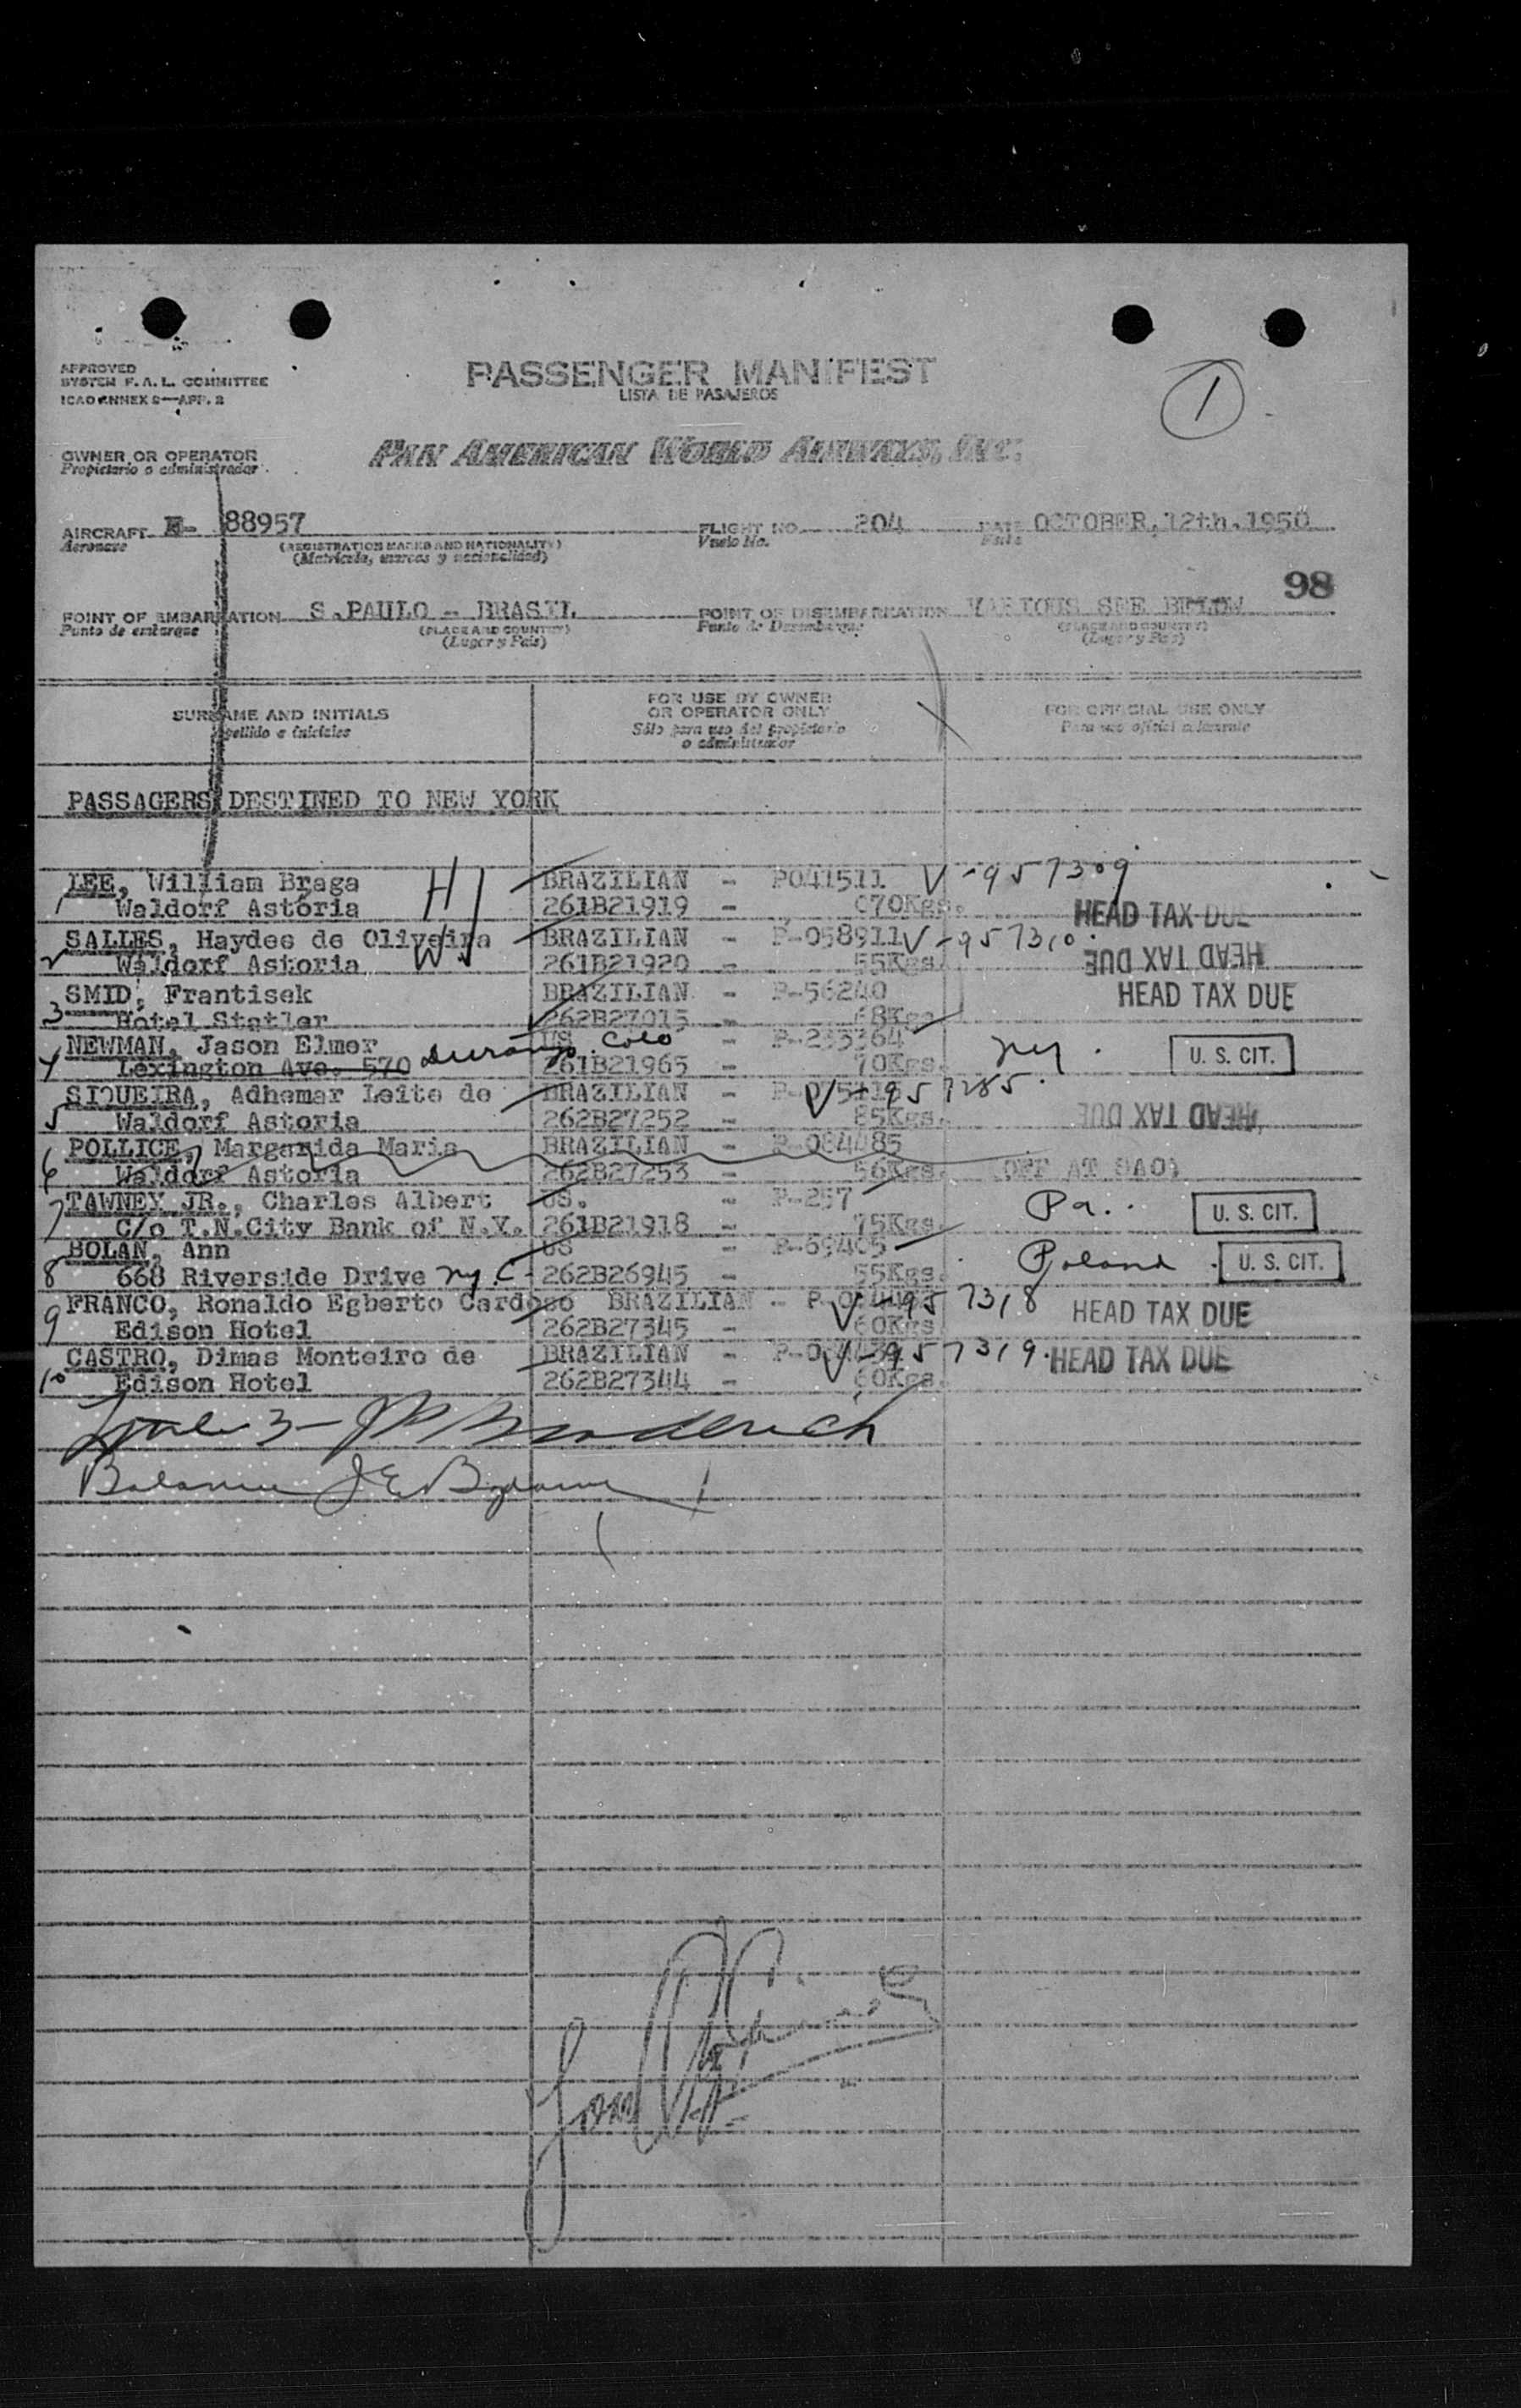 APPROVED
SYSTEM F. A. L. COMMITTEE
ICAO ANNEX 9—APP. 2
PASSENGER MANIFEST
LISTA DE PASAJEROS
1
OWNER OR OPERATOR
Propietario o administrador
PAN AMERICAN WORLD AIRWAYS, INC.
AIRCRAFT 88957
Aeronave
(REGISTRATION MARKS AND NATIONALITY)
(Matrícula, marcas y nacionalidad)
FLIGHT NO. 204
Vuelo No.
DATE OCTOBER, 12th. 1950
98
POINT OF EMBARKATION S.PAULO - BRASIL
Punto de embarque
(PLACE AND COUNTRY)
(Lugar y País)
POINT OF DISEMBARKATION VARIOUS SEE BELOW
Punto de Desembarque
(PLACE AND COUNTRY)
(Lugar y País)
SURNAME AND INITIALS
Apellido e iniciales
FOR USE BY OWNER
OR OPERATOR ONLY
Sólo para uso del propietario
o administrador
FOR OFFICIAL USE ONLY
Para uso oficial solamente
PASSAGERS DESTINED TO NEW YORK
LEE, William Braga H BRAZILIAN - P041511 V-957309
1 Waldorf Astoria 261B21919 - 070Kgs. HEAD TAX DUE
SALLES, Haydee de Oliveira W BRAZILIAN - P-058911 V-957310
2 Waldorf Astoria 261B21920 - 55Kgs. HEAD TAX DUE
SMID, Frantisek BRAZILIAN - P-56240 HEAD TAX DUE
3 Hotel Statler 262B27015 - 68Kgs
NEWMAN, Jason Elmer Durango. Colo US - P-235364 ny. U. S. CIT.
4 Lexington Ave. 570 261B21965 - 70Kgs
SIQUEIRA, Adhemar Leite de BRAZILIAN - V-957285
5 Waldorf Astoria 262B27252 - 85Kgs. HEAD TAX DUE
POLLICE, Margarida Maria BRAZILIAN - P-084485
6 Waldorf Astoria 262B27253 - 56Kgs.
TAWNEY JR., Charles Albert US. - P-257 Pa. U. S. CIT.
7 C/o T.N.City Bank of N.Y. 261B21918 - 75Kgs.
BOLAN, Ann US - P-69405 Poland U. S. CIT.
8 668 Riverside Drive ny.C- 262B26945 - 55Kgs.
FRANCO, Ronaldo Egberto Cardoso BRAZILIAN - V-957318 HEAD TAX DUE
9 Edison Hotel 262B27345 - 60Kgs
CASTRO, Dimas Monteiro de BRAZILIAN - V-957319. HEAD TAX DUE
10 Edison Hotel 262B27344 - 60Kgs.